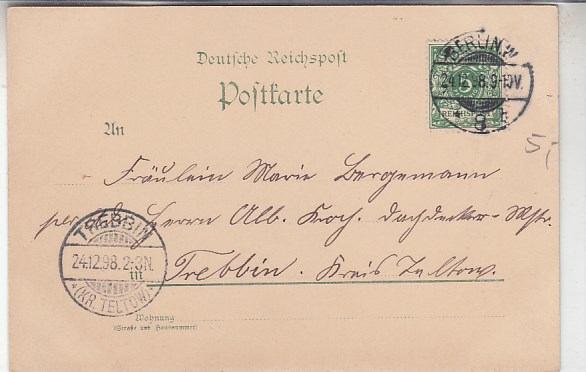 Deutsche Reichspost
Postkarte
BERLIN.W.
24.12.98.9-10V.
REICHSPOST
An
5,-
Fräulein Marie Bergemann
per Ad. Herrn Alb. Koch. Dachdecker-Mstr.
in Trebbin. Kreis Teltow.
TREBBIN
24.12.98.2-3N.
*(KR. TELTOW)*
Wohnung
(Straße und Hausnummer)